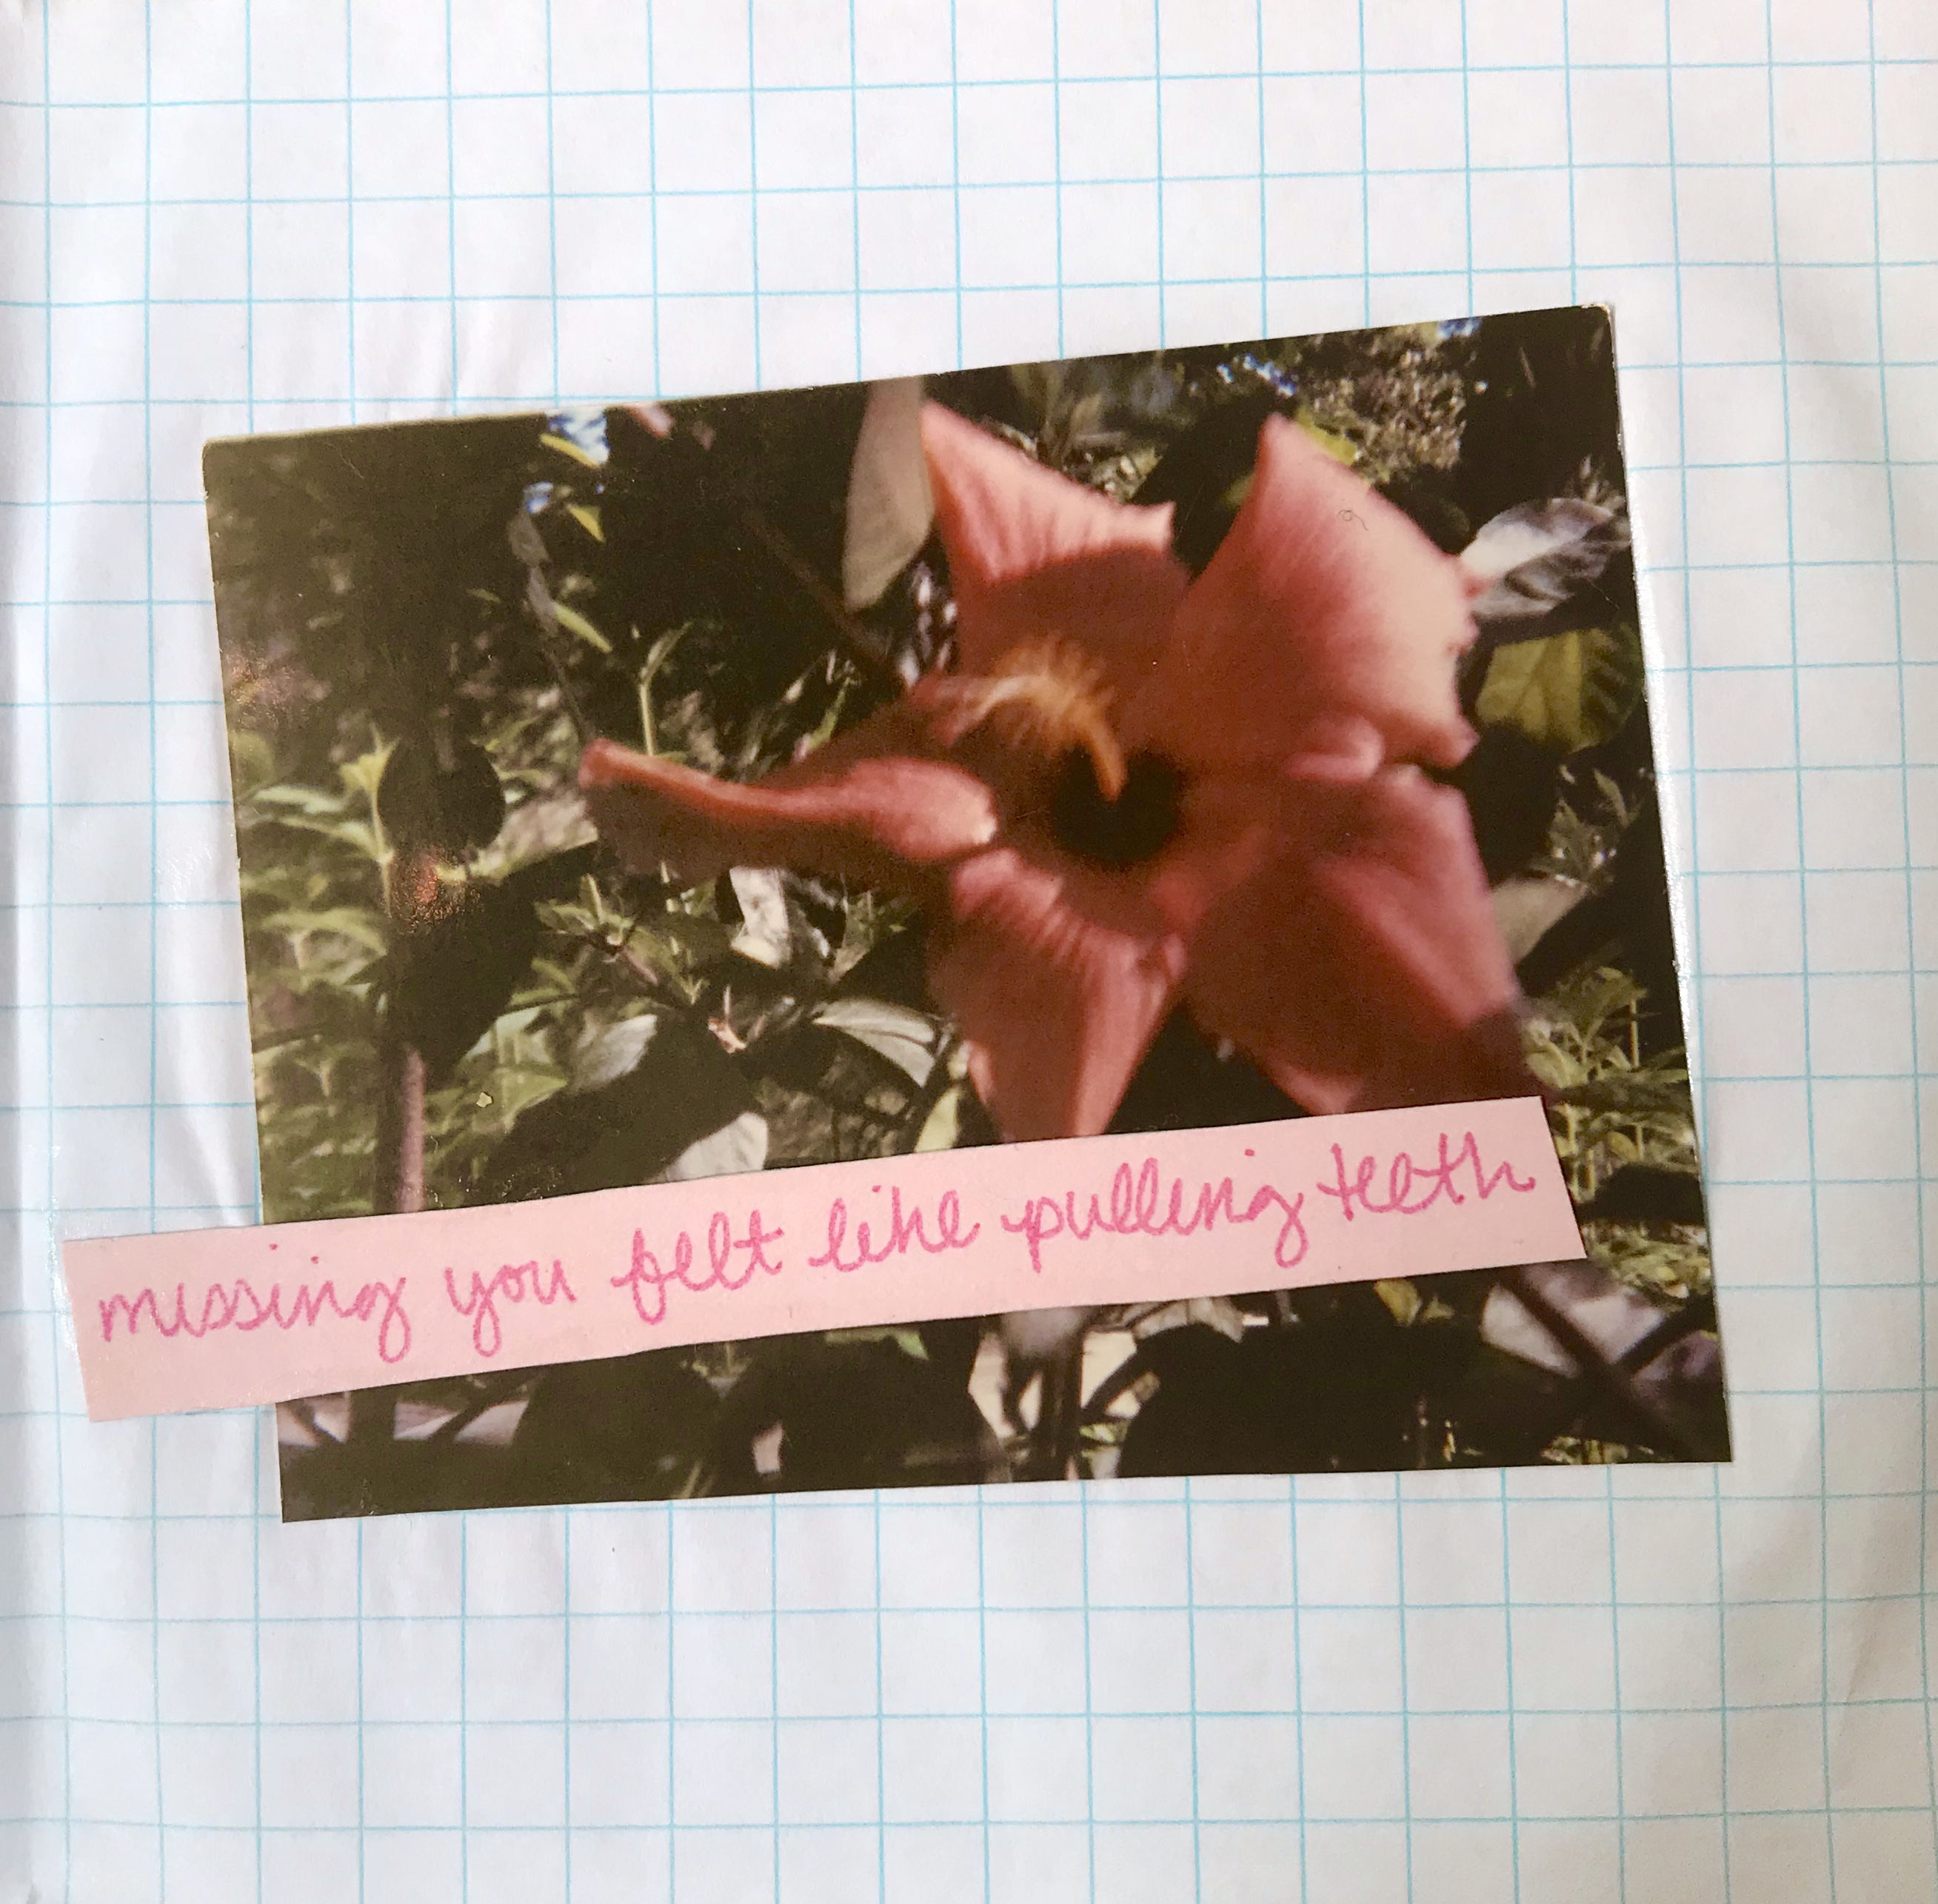 missing you felt like pulling teeth